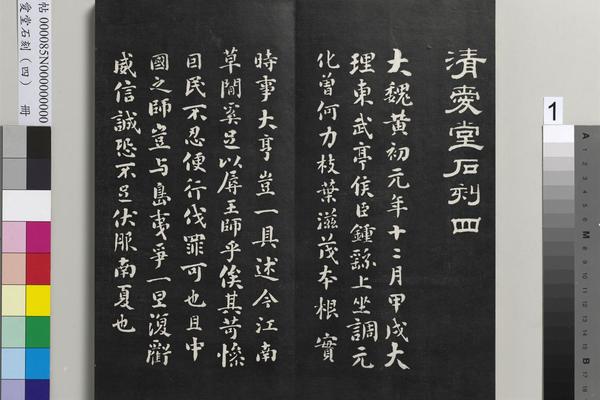 清愛堂石刻四
大魏黄初元年十二月甲戌大
理東武亭侯臣鍾繇上坐調元
化曾何力枝葉滋茂本根實
時事大亨豈一具述今江南
草間奚足以屏王師乎俟其苛慘
目民不忍便行伐罪可也且中
國之師豈与島夷爭一旦復衢
威信誠恐不足伏服南夏也
帖 000085N000000000
愛堂石刻（四） 冊
1
A
M
B